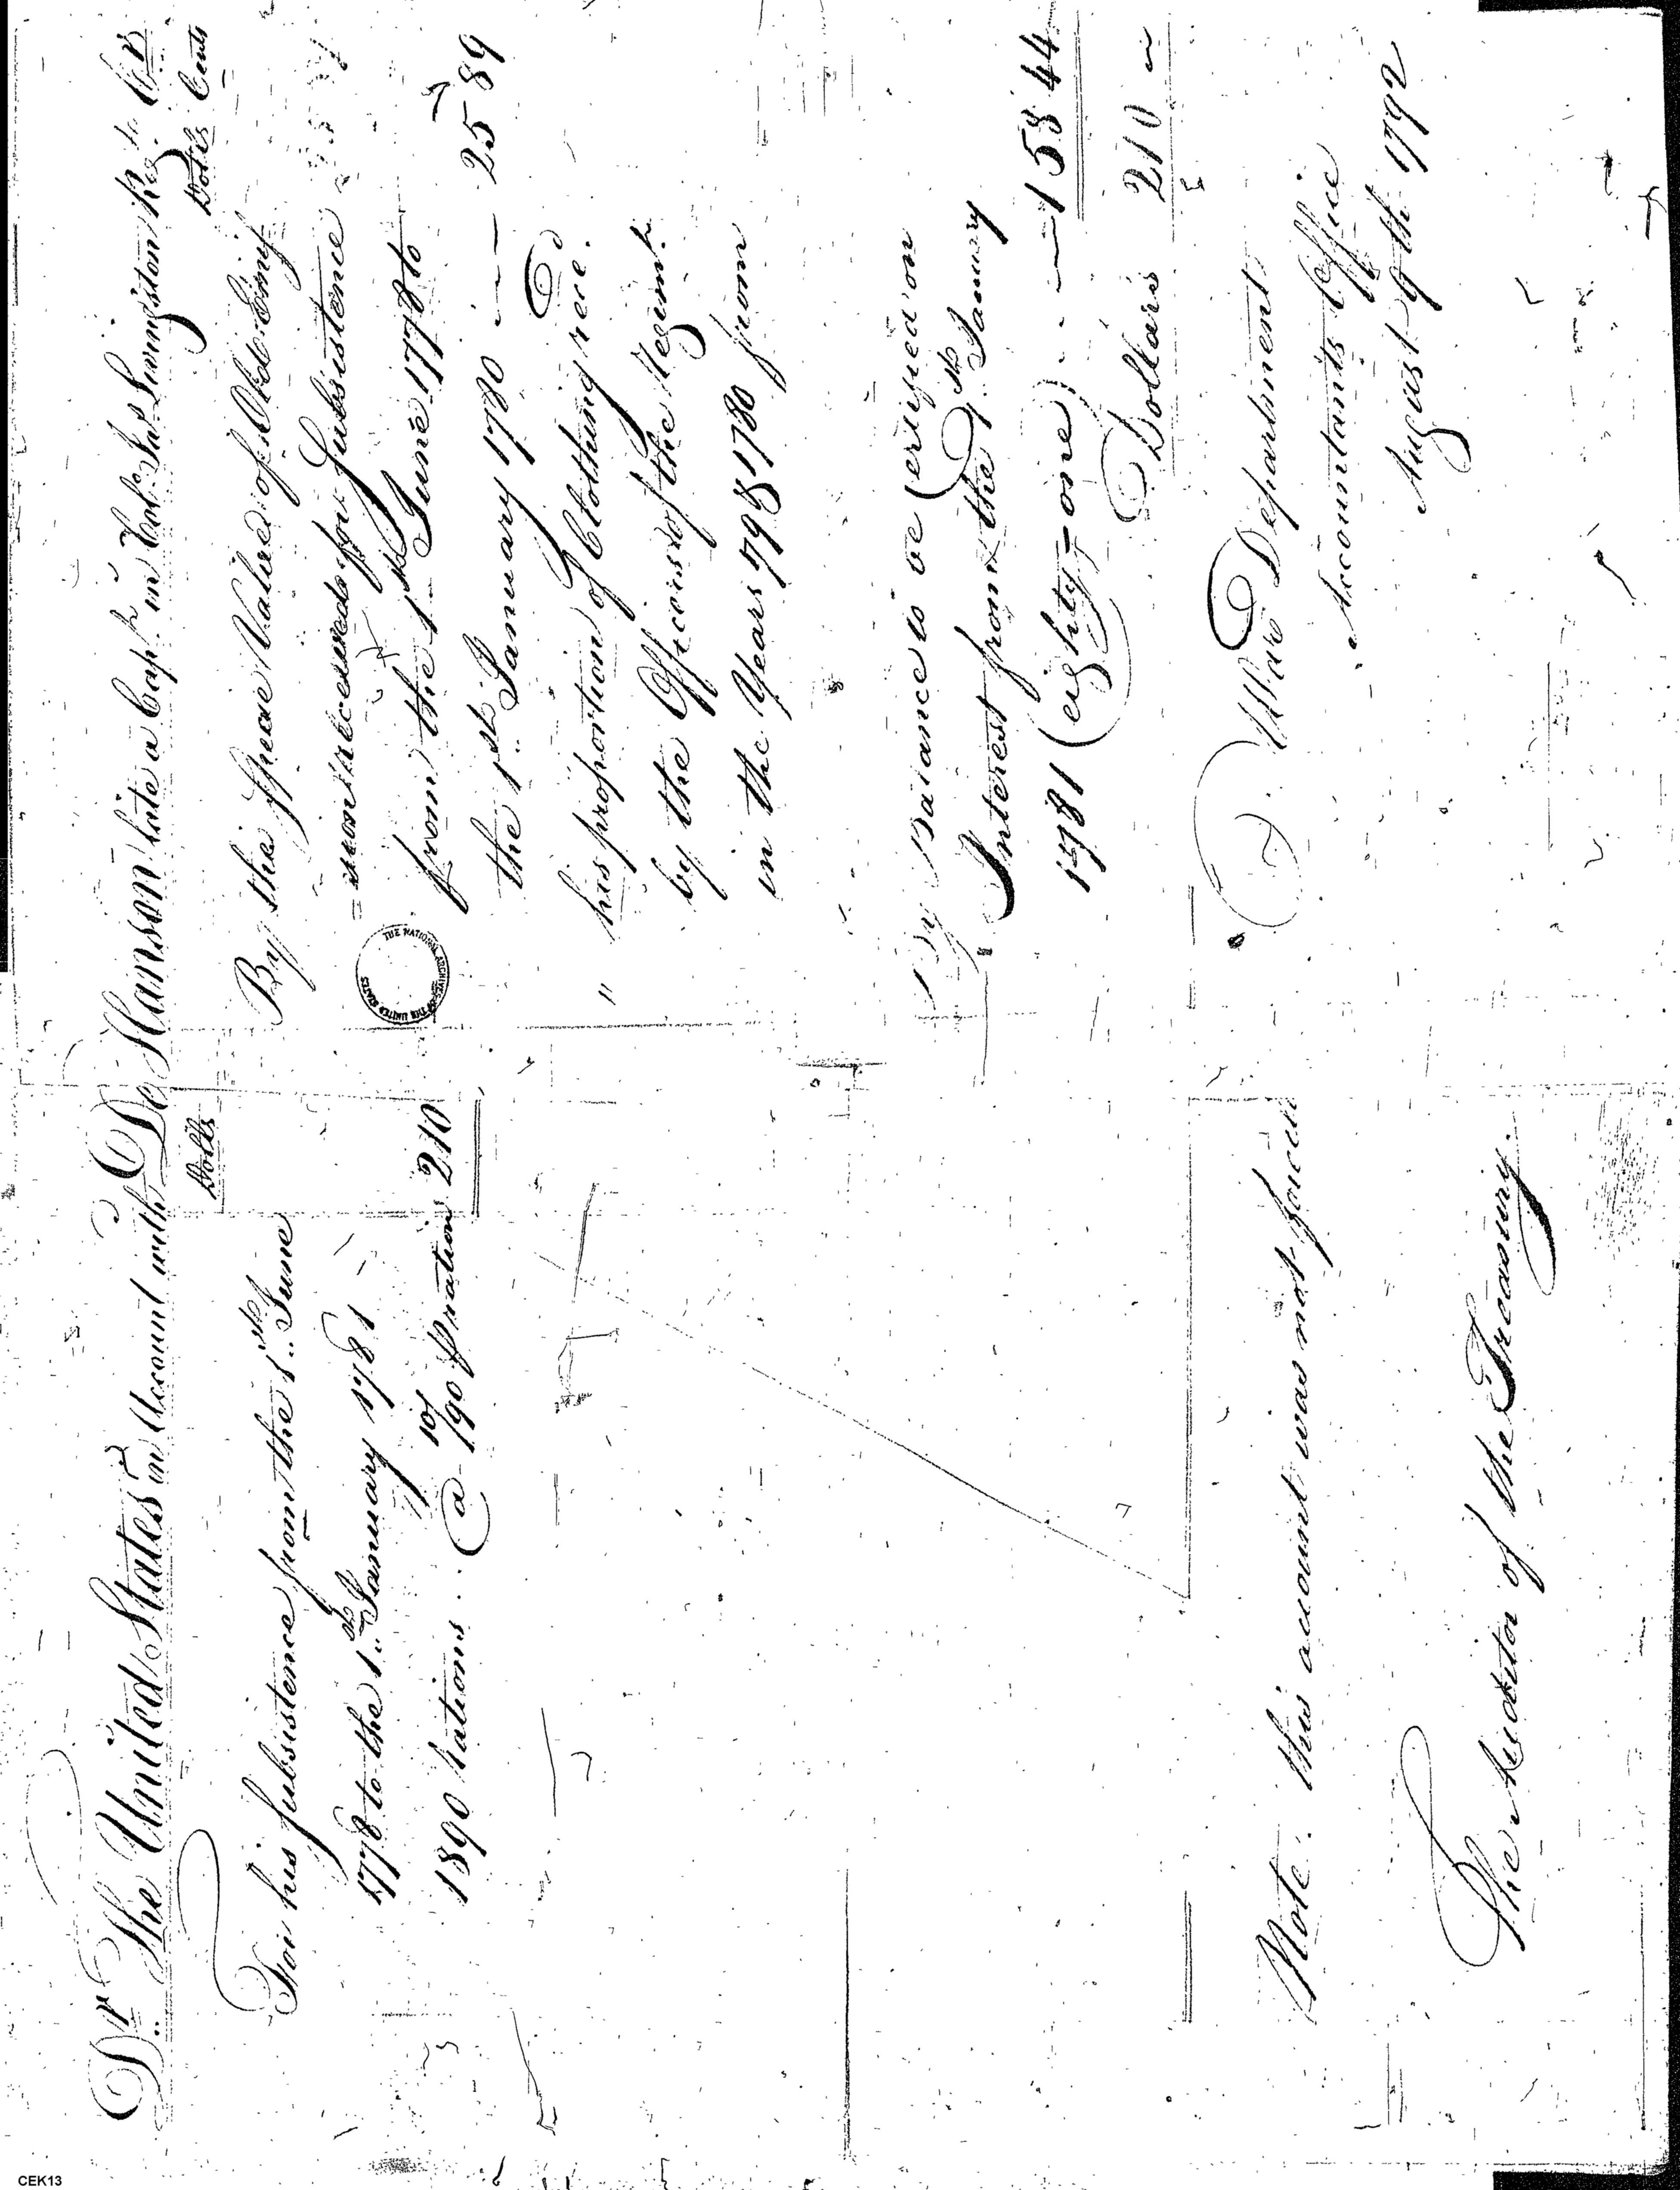 Dr. The United States in Account with De Hanson late a Capt. in Col. Jas Livingston Regt. Cr.
Dolls
For his subsistence from the 1st June
1778 to the 1st January 1781
1890 Rations @ 10/90 pr ration 210
Dolls Cents
By the Specie Value of Old Emis
sion received for Subsistence
from the 1st June 1778 to
the 1st January 1780 25 89
" his proportion of Clothing rece.
by the Officers of the Regimt.
in the Years 79 & 1780 from
By Balance to be certified on
Interest from the 1st January
1781 (eighty-one) 158 44
Dollars 210
War Department
Accountants Office
August 9th 1792
Note. this account was not
The Auditor of the Treasury.
THE NATIONAL ARCHIVES OF THE UNITED STATES
CEK13